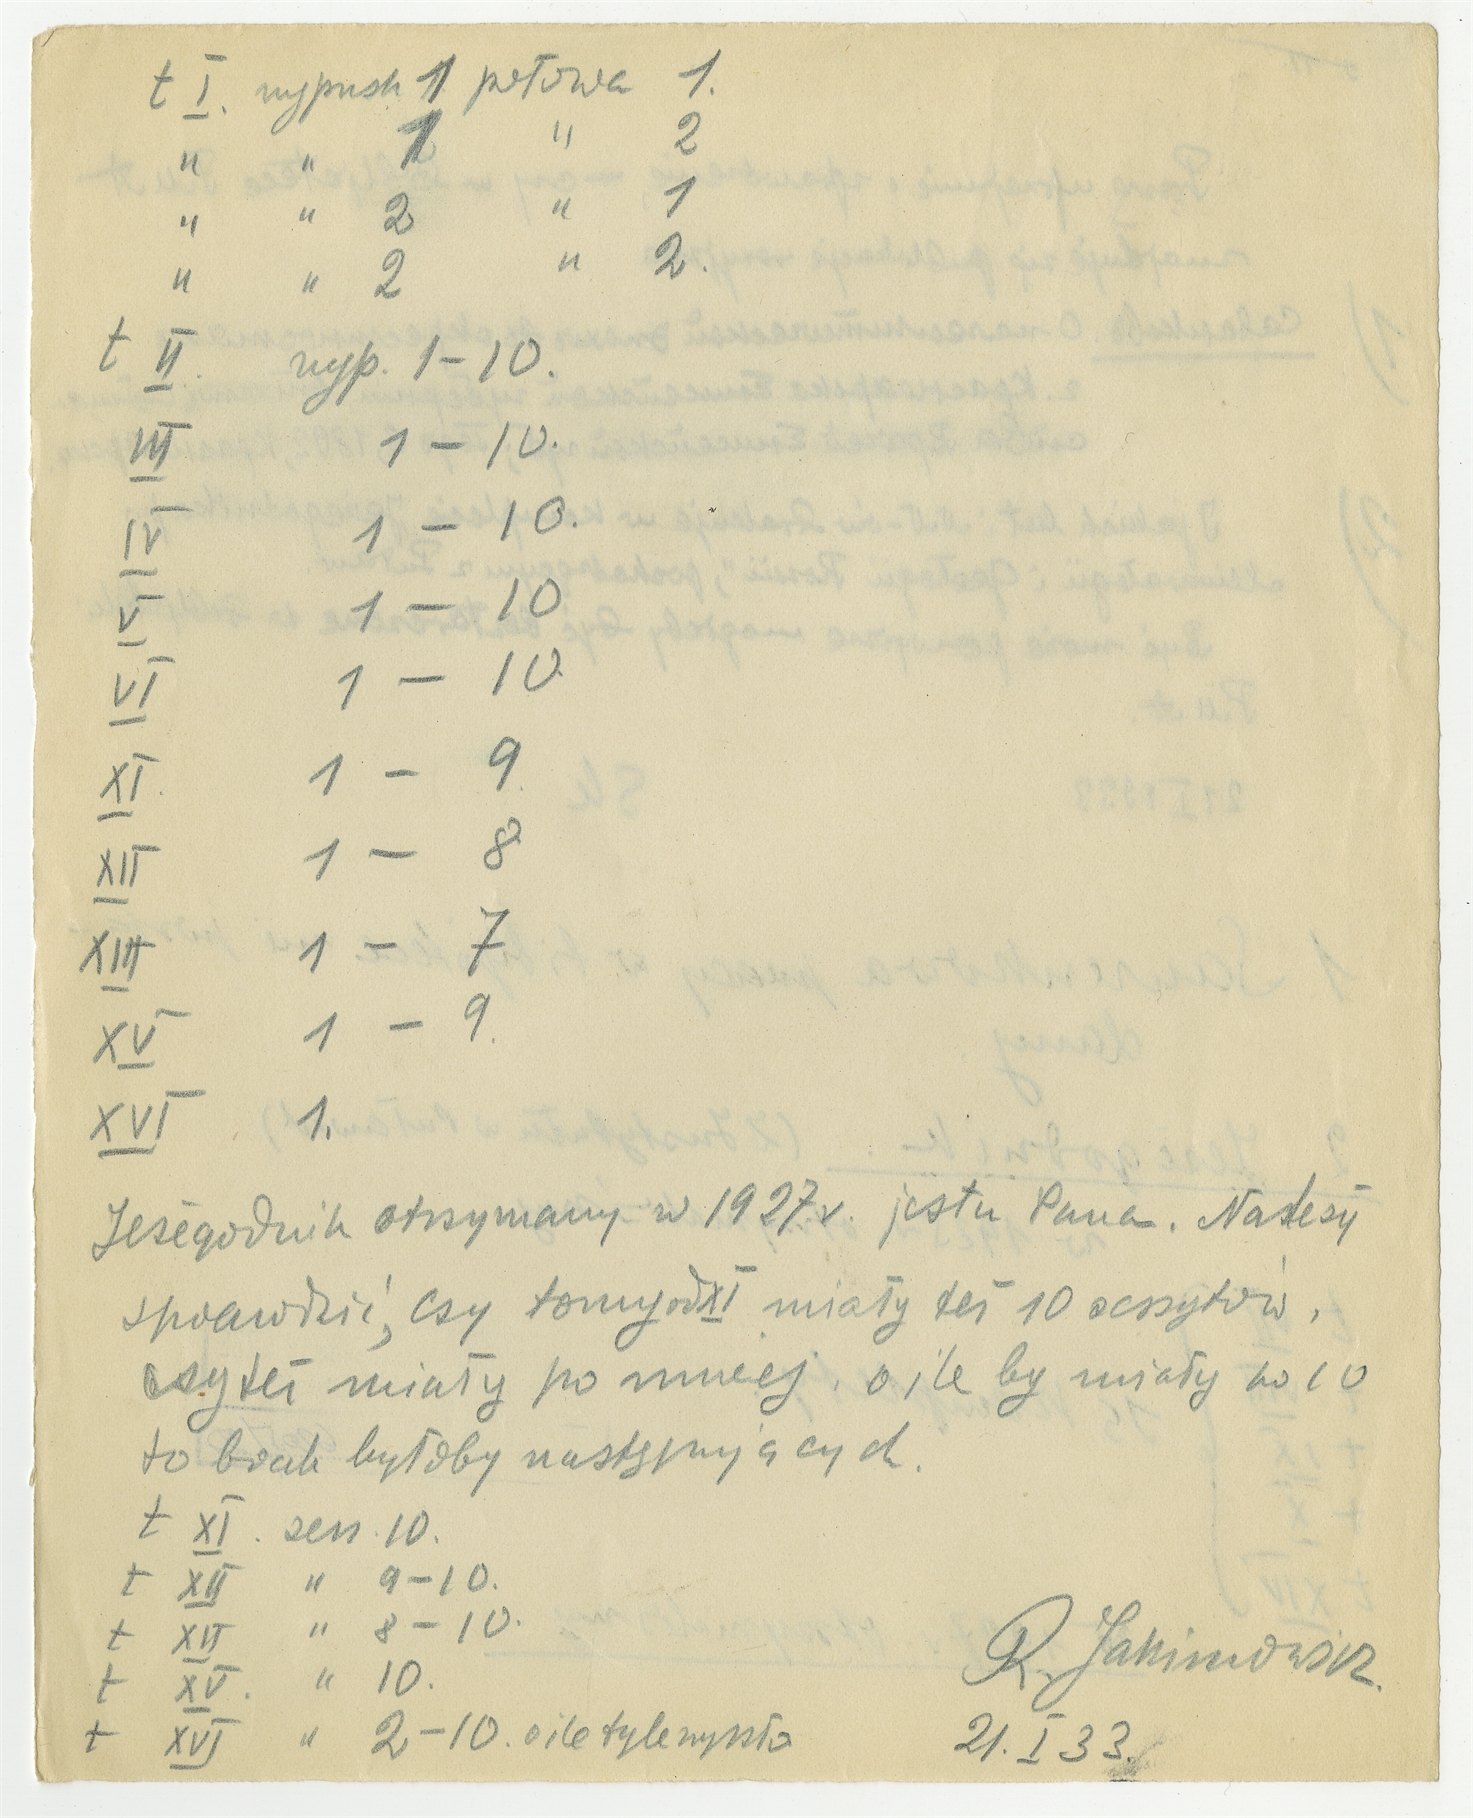 t I. wypusk 1 połowa 1.
" " 1 " 2
" " 2 " 1
" " 2 " 2.
t II. wyp. 1-10.
III 1 - 10.
IV 1 - 10.
V 1 - 10
VI 1 - 10
XI. 1 - 9.
XII 1 - 8
XIII 1 - 7
XV 1 - 9.
XVI 1.
Jeżegodnik otrzymany w 1927 r. jest u Pana. Należy
sprawdzić, czy tomy od XI miały też 10 zeszytów,
czy też miały po mniej. o ile by miały po 10
to brak byłoby następujących.
t XI. zesz. 10.
t XII " 9-10.
t XII " 8-10.
t XV. " 10.
t XVI " 2-10. o ile tyle wyszło
R. Jakimowicz.
21. I 33.